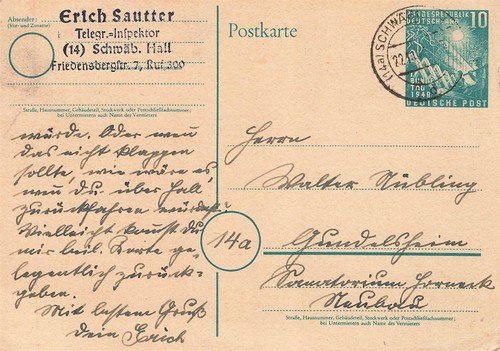 Absender:
(Vor- und Zuname)
Erich Sautter
Telegr.-Inspektor
(14) Schwäb. Hall
Friedensbergstr. 7, Ruf 300
Straße, Hausnummer, Gebäudeteil, Stockwerk oder Postschließfachnummer;
bei Untermietern auch Name des Vermieters
würde. Oder wenn
das nicht klappen
sollte, wie wäre es,
wenn Du über Hall
zurückfahren würdest?
Vielleicht kannst Du
mir beil. Karte ge-
legentlich zurück-
geben.
Mit bestem Gruß
Dein Erich
Postkarte
(14a) SCHWÄB
22.
BUNDESREPUBLIK
DEUTSCHLAND
10
BUNDES
TAG
1949
DEUTSCHE POST
Herrn
Walter Nübling
14a
Gundelsheim
Sanatorium Horneck
Neubau
Straße, Hausnummer, Gebäudeteil, Stockwerk oder Postschließfachnummer;
bei Untermietern auch Name des Vermieters